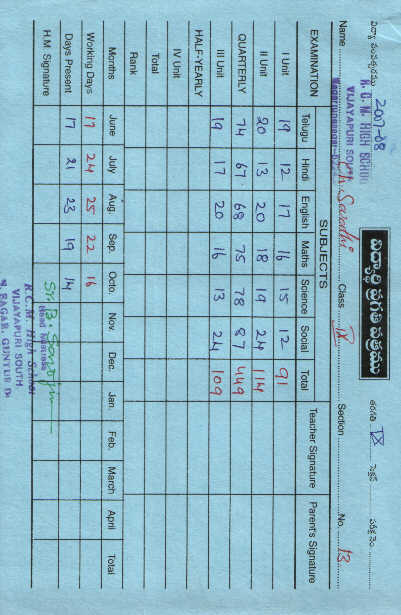 విద్యా సంవత్సరము 2007-08 తరగతి IX సెక్షన్
విద్యార్థి ప్రగతి పత్రము
R. C. M. HIGH SCHOOL
VIJAYAPURI SOUTH
Name Ch. Sarathi Class IX Section No. 13
EXAMINATION SUBJECTS Teacher Signature Parent's Signature
Telugu Hindi English Maths Science Social Total
I Unit 19 12 17 16 15 12 91
II Unit 20 13 20 18 19 24 114
QUARTERLY 74 67 68 75 78 87 449
III Unit 19 17 20 16 13 24 109
HALF-YEARLY
IV Unit
Total
Rank
Months June July Aug. Sep. Octo. Nov. Dec. Jan. Feb. March April Total
Working Days 17 24 25 22 16
Days Present 17 21 23 19 14
H.M. Signature
R.C.M. High School
VIJAYAPURI SOUTH
N. SAGAR, GUNTUR Dt